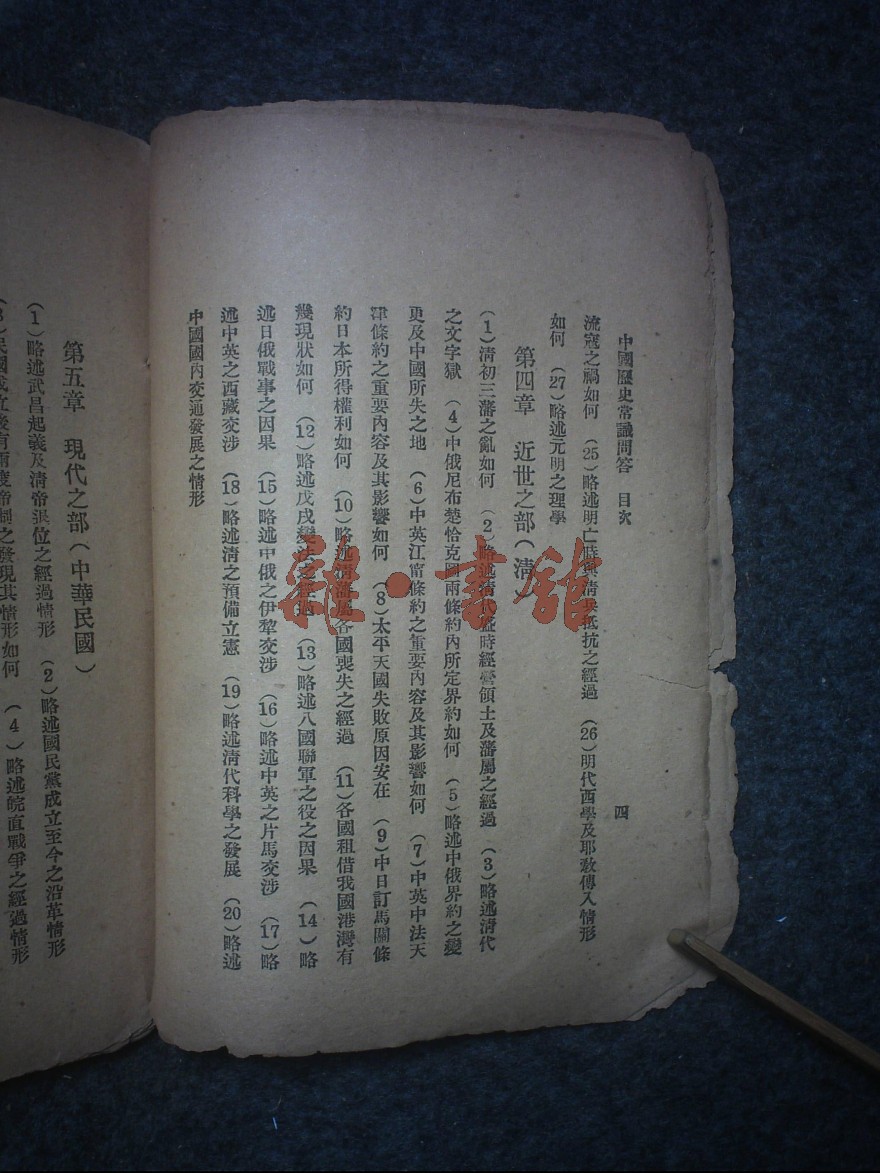 中國歷史常識問答 目次 四
流寇之禍如何 (25)略述明亡時與清兵抵抗之經過 (26)明代西學及耶教傳入情形
如何 (27)略述元明之理學
第四章 近世之部(清)
(1)清初三藩之亂如何 (2)略述清代盛時經營領土及藩屬之經過 (3)略述清代
之文字獄 (4)中俄尼布楚恰克圖兩條約內所定界約如何 (5)略述中俄界約之變
更及中國所失之地 (6)中英江甯條約之重要內容及其影響如何 (7)中英中法天
津條約之重要內容及其影響如何 (8)太平天國失敗原因安在 (9)中日訂馬關條
約日本所得權利如何 (10)略述清藩屬各國喪失之經過 (11)各國租借我國港灣有
幾現狀如何 (12)略述戊戌變法之經過 (13)略述八國聯軍之役之因果 (14)略
述日俄戰事之因果 (15)略述中俄之伊犂交涉 (16)略述中英之片馬交涉 (17)略
述中英之西藏交涉 (18)略述清之預備立憲 (19)略述清代科學之發展 (20)略述
中國國內交通發展之情形
第五章 現代之部(中華民國)
(1)略述武昌起義及清帝退位之經過情形 (2)略述國民黨成立至今之沿革情形
(3)民國成立後有兩度帝制之發現其情形如何 (4)略述皖直戰爭之經過情形
雜·書館